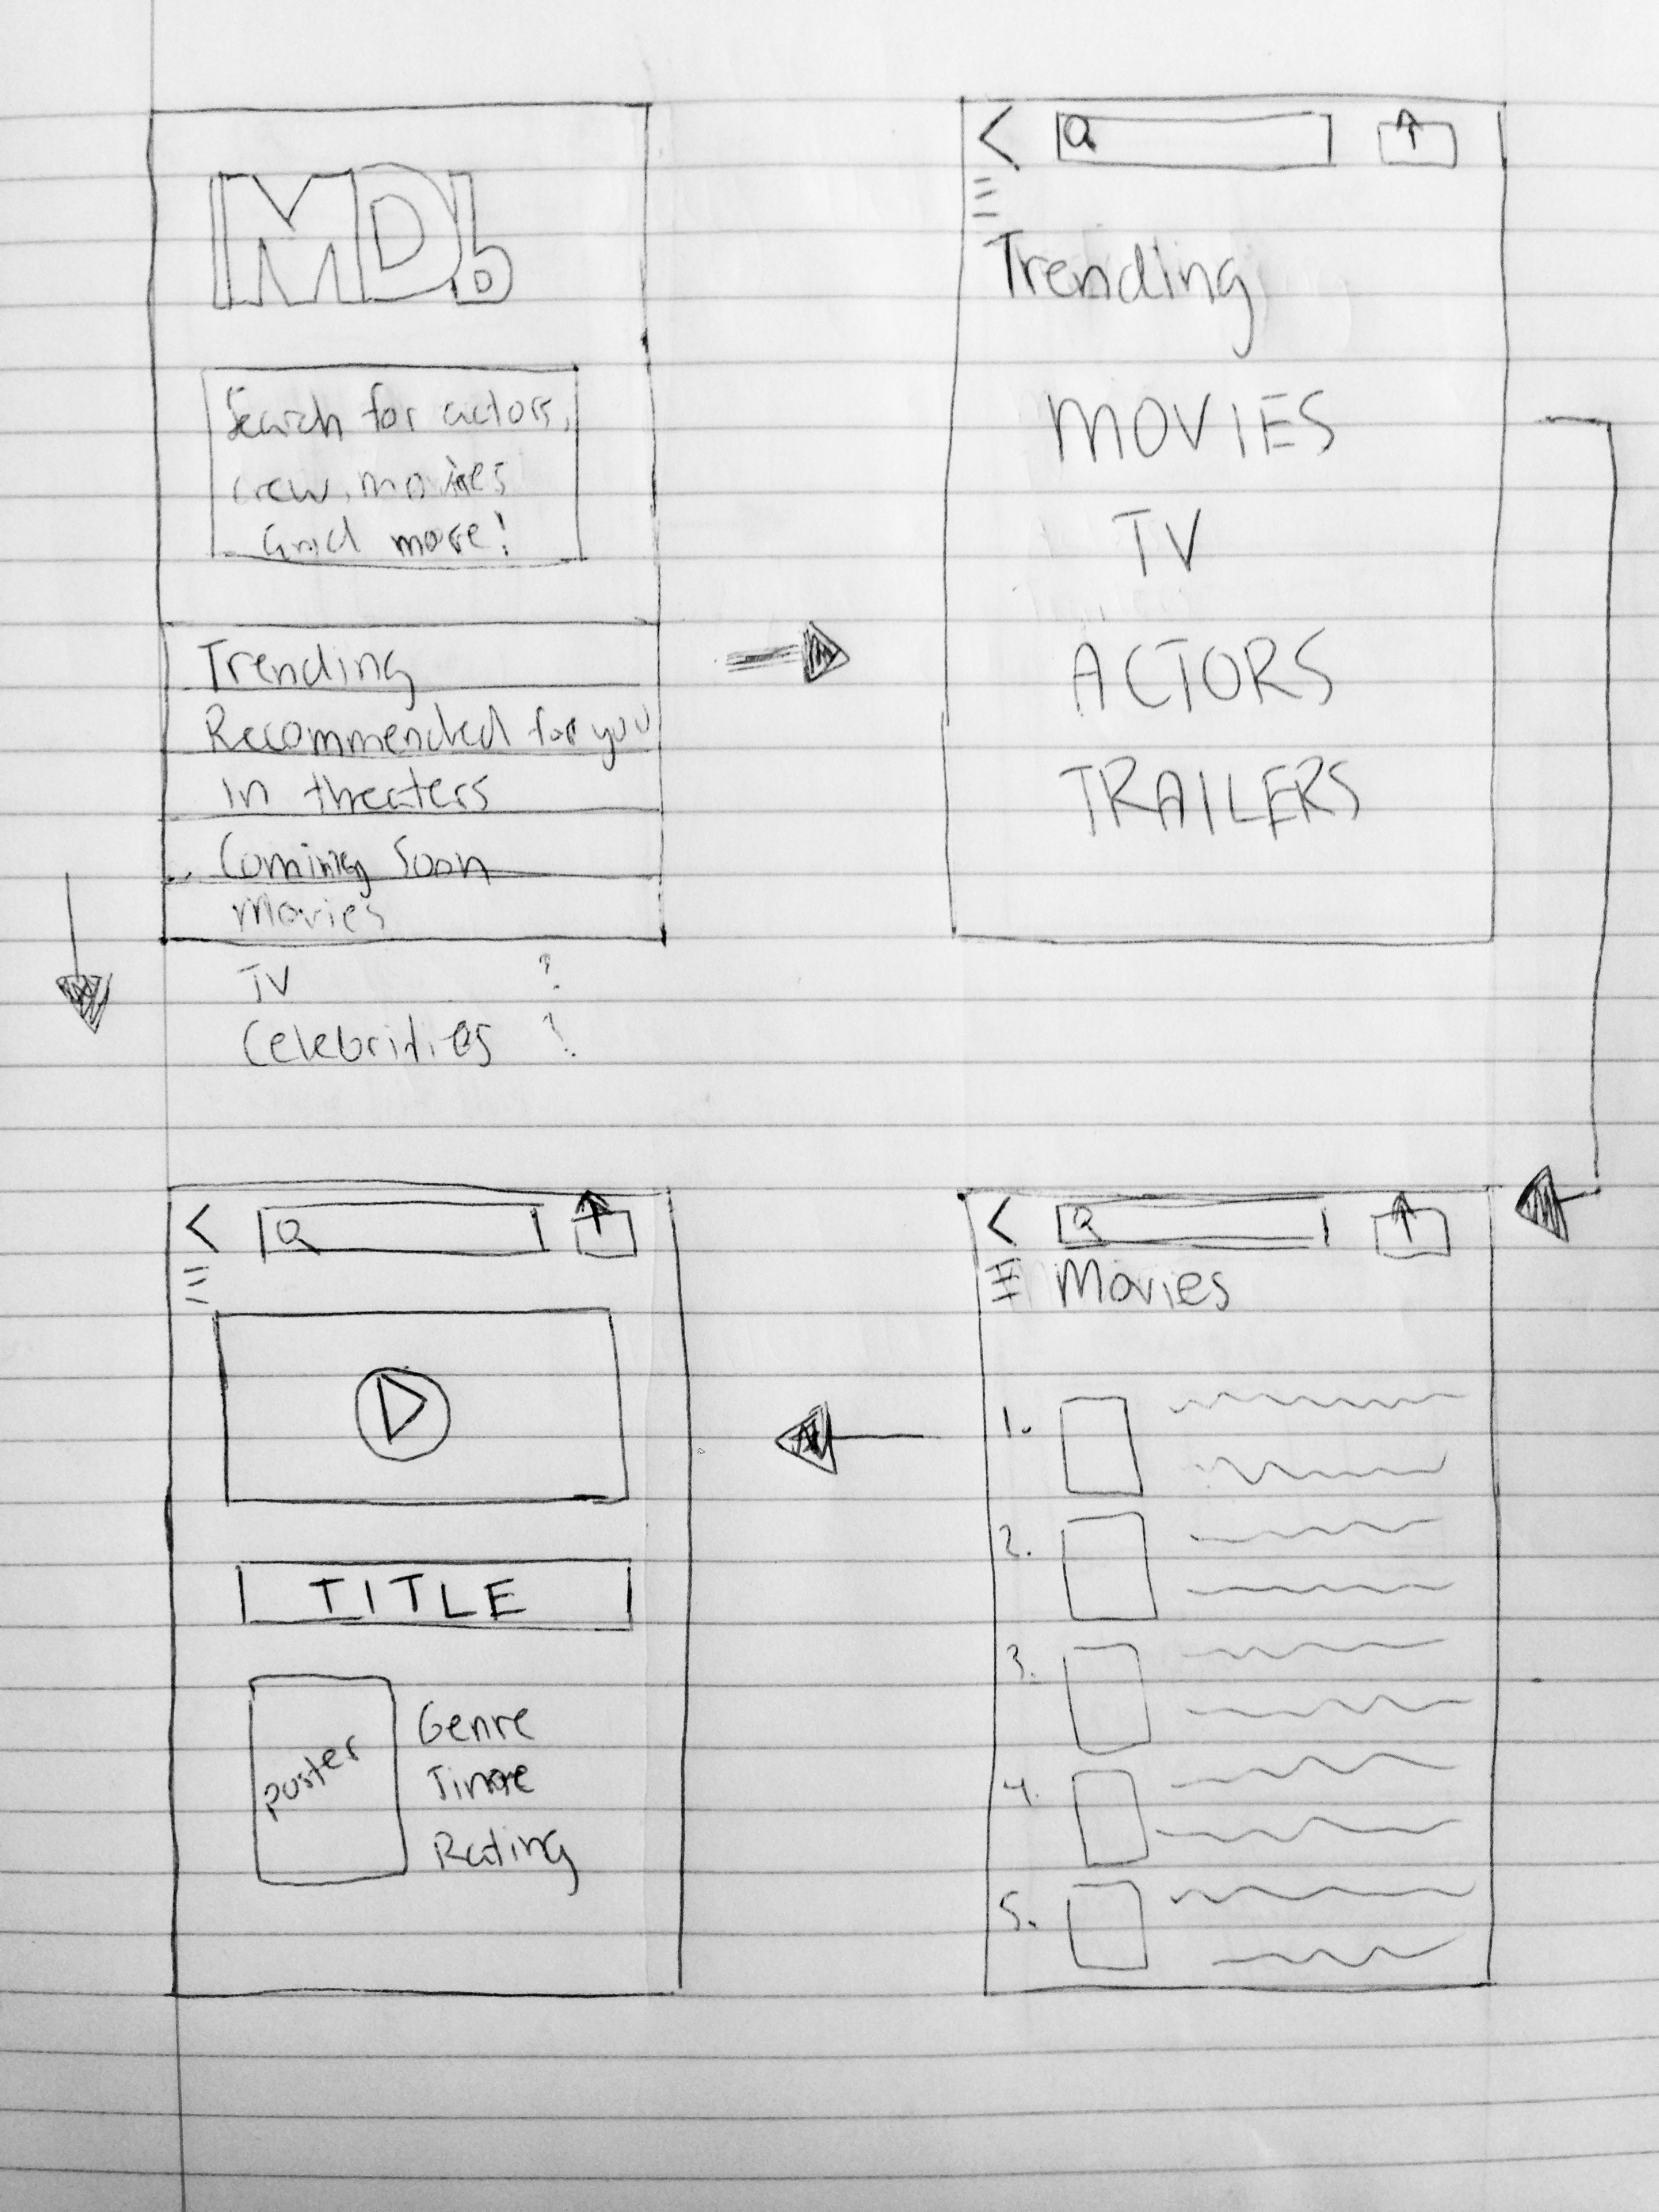 MDb
Search for actors,
crew, movies
and more!
Trending
Recommended for you
In theaters
Coming Soon
Movies
TV ?
Celebrities ?
Trending
MOVIES
TV
ACTORS
TRAILERS
TITLE
poster
Genre
Time
Rating
Movies
1.
2.
3.
4.
5.